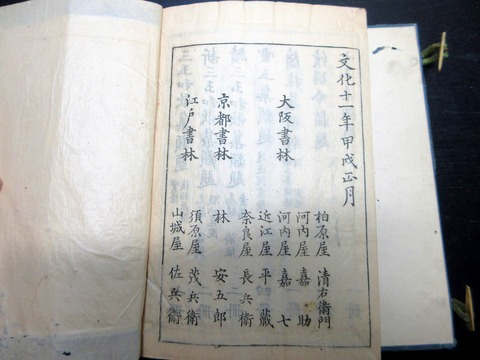 文化十一年甲戌正月
大阪書林
柏原屋 清右衛門
河内屋 嘉助
河内屋 嘉七
近江屋 平蔵
奈良屋 長兵衛
京都書林
林 安五郎
江戸書林
須原屋 茂兵衛
山城屋 佐兵衛